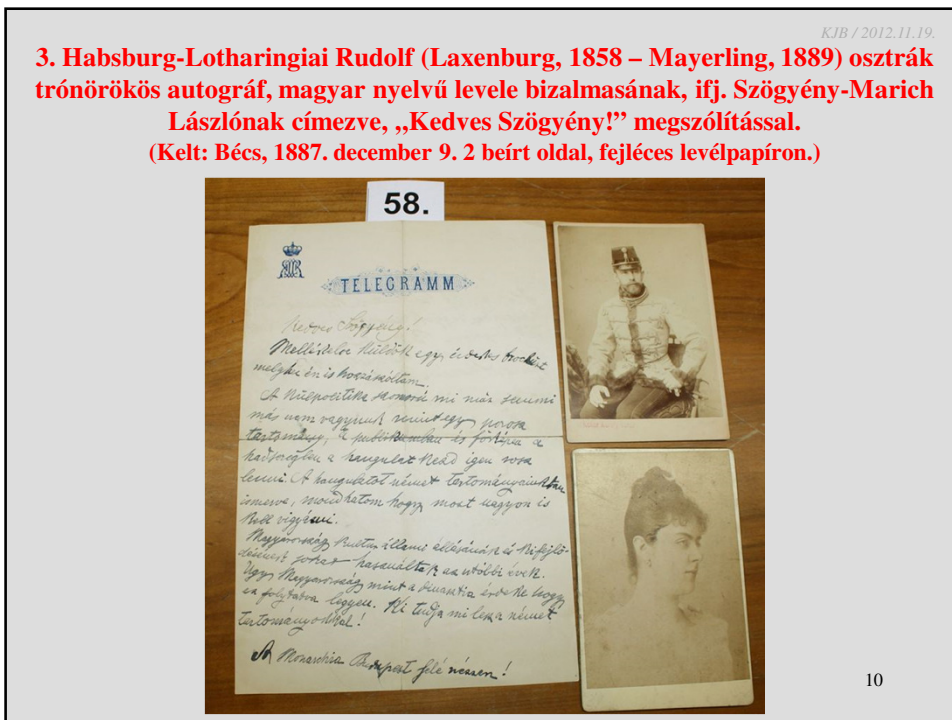 KJB / 2012.11.19.
3. Habsburg-Lotharingiai Rudolf (Laxenburg, 1858 – Mayerling, 1889) osztrák
trónörökös autográf, magyar nyelvű levele bizalmasának, ifj. Szögyény-Marich
Lászlónak címezve, „Kedves Szögyény!” megszólítással.
(Kelt: Bécs, 1887. december 9. 2 beírt oldal, fejléces levélpapíron.)
58.
TELEGRAMM
Kedves Szögyény!
Mellékelve küldök egy érdekes
melyhez én is hozzászóltam.
A külpolitika mi már semmi
más nem vagyunk mint egy porosz
tartomány, a publikumban és főképen a
hadseregben a hangulat kezd igen rossz
lenni. A hangulatot német tartományainkban
ismerve, mondhatom hogy most nagyon is
kell vigyázni.
Magyarország kultur állami állásának és kifejlő-
désének sokat használtak az utóbbi évek.
Ugy Magyarország mint a dinasztia érdeke hogy
ez folytatva legyen. Ki tudja mi lesz a német
tartományokkal!
A Monarchia Budapest felé nézzen!
10